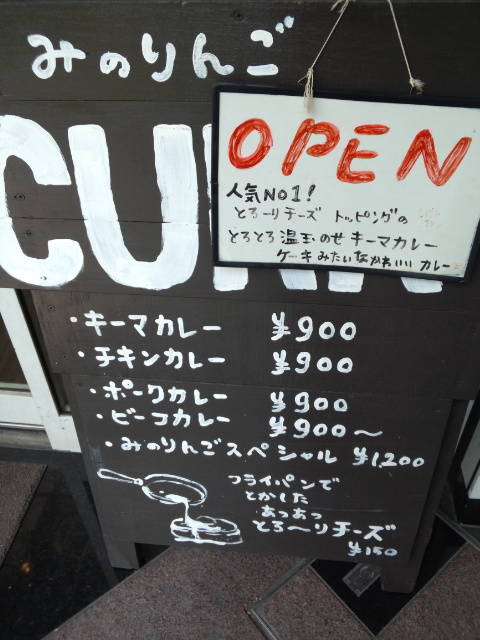 みのりんご
CURRY
OPEN
人気NO1!
とろ〜りチーズ トッピングの
とろとろ温玉のせキーマカレー
ケーキみたいなかわいいカレー
・キーマカレー ¥900
・チキンカレー ¥900
・ポークカレー ¥900
・ビーコカレー ¥900〜
・みのりんごスペシャル ¥1,200
フライパンで
とかした
あつあつ
とろ〜りチーズ
¥150